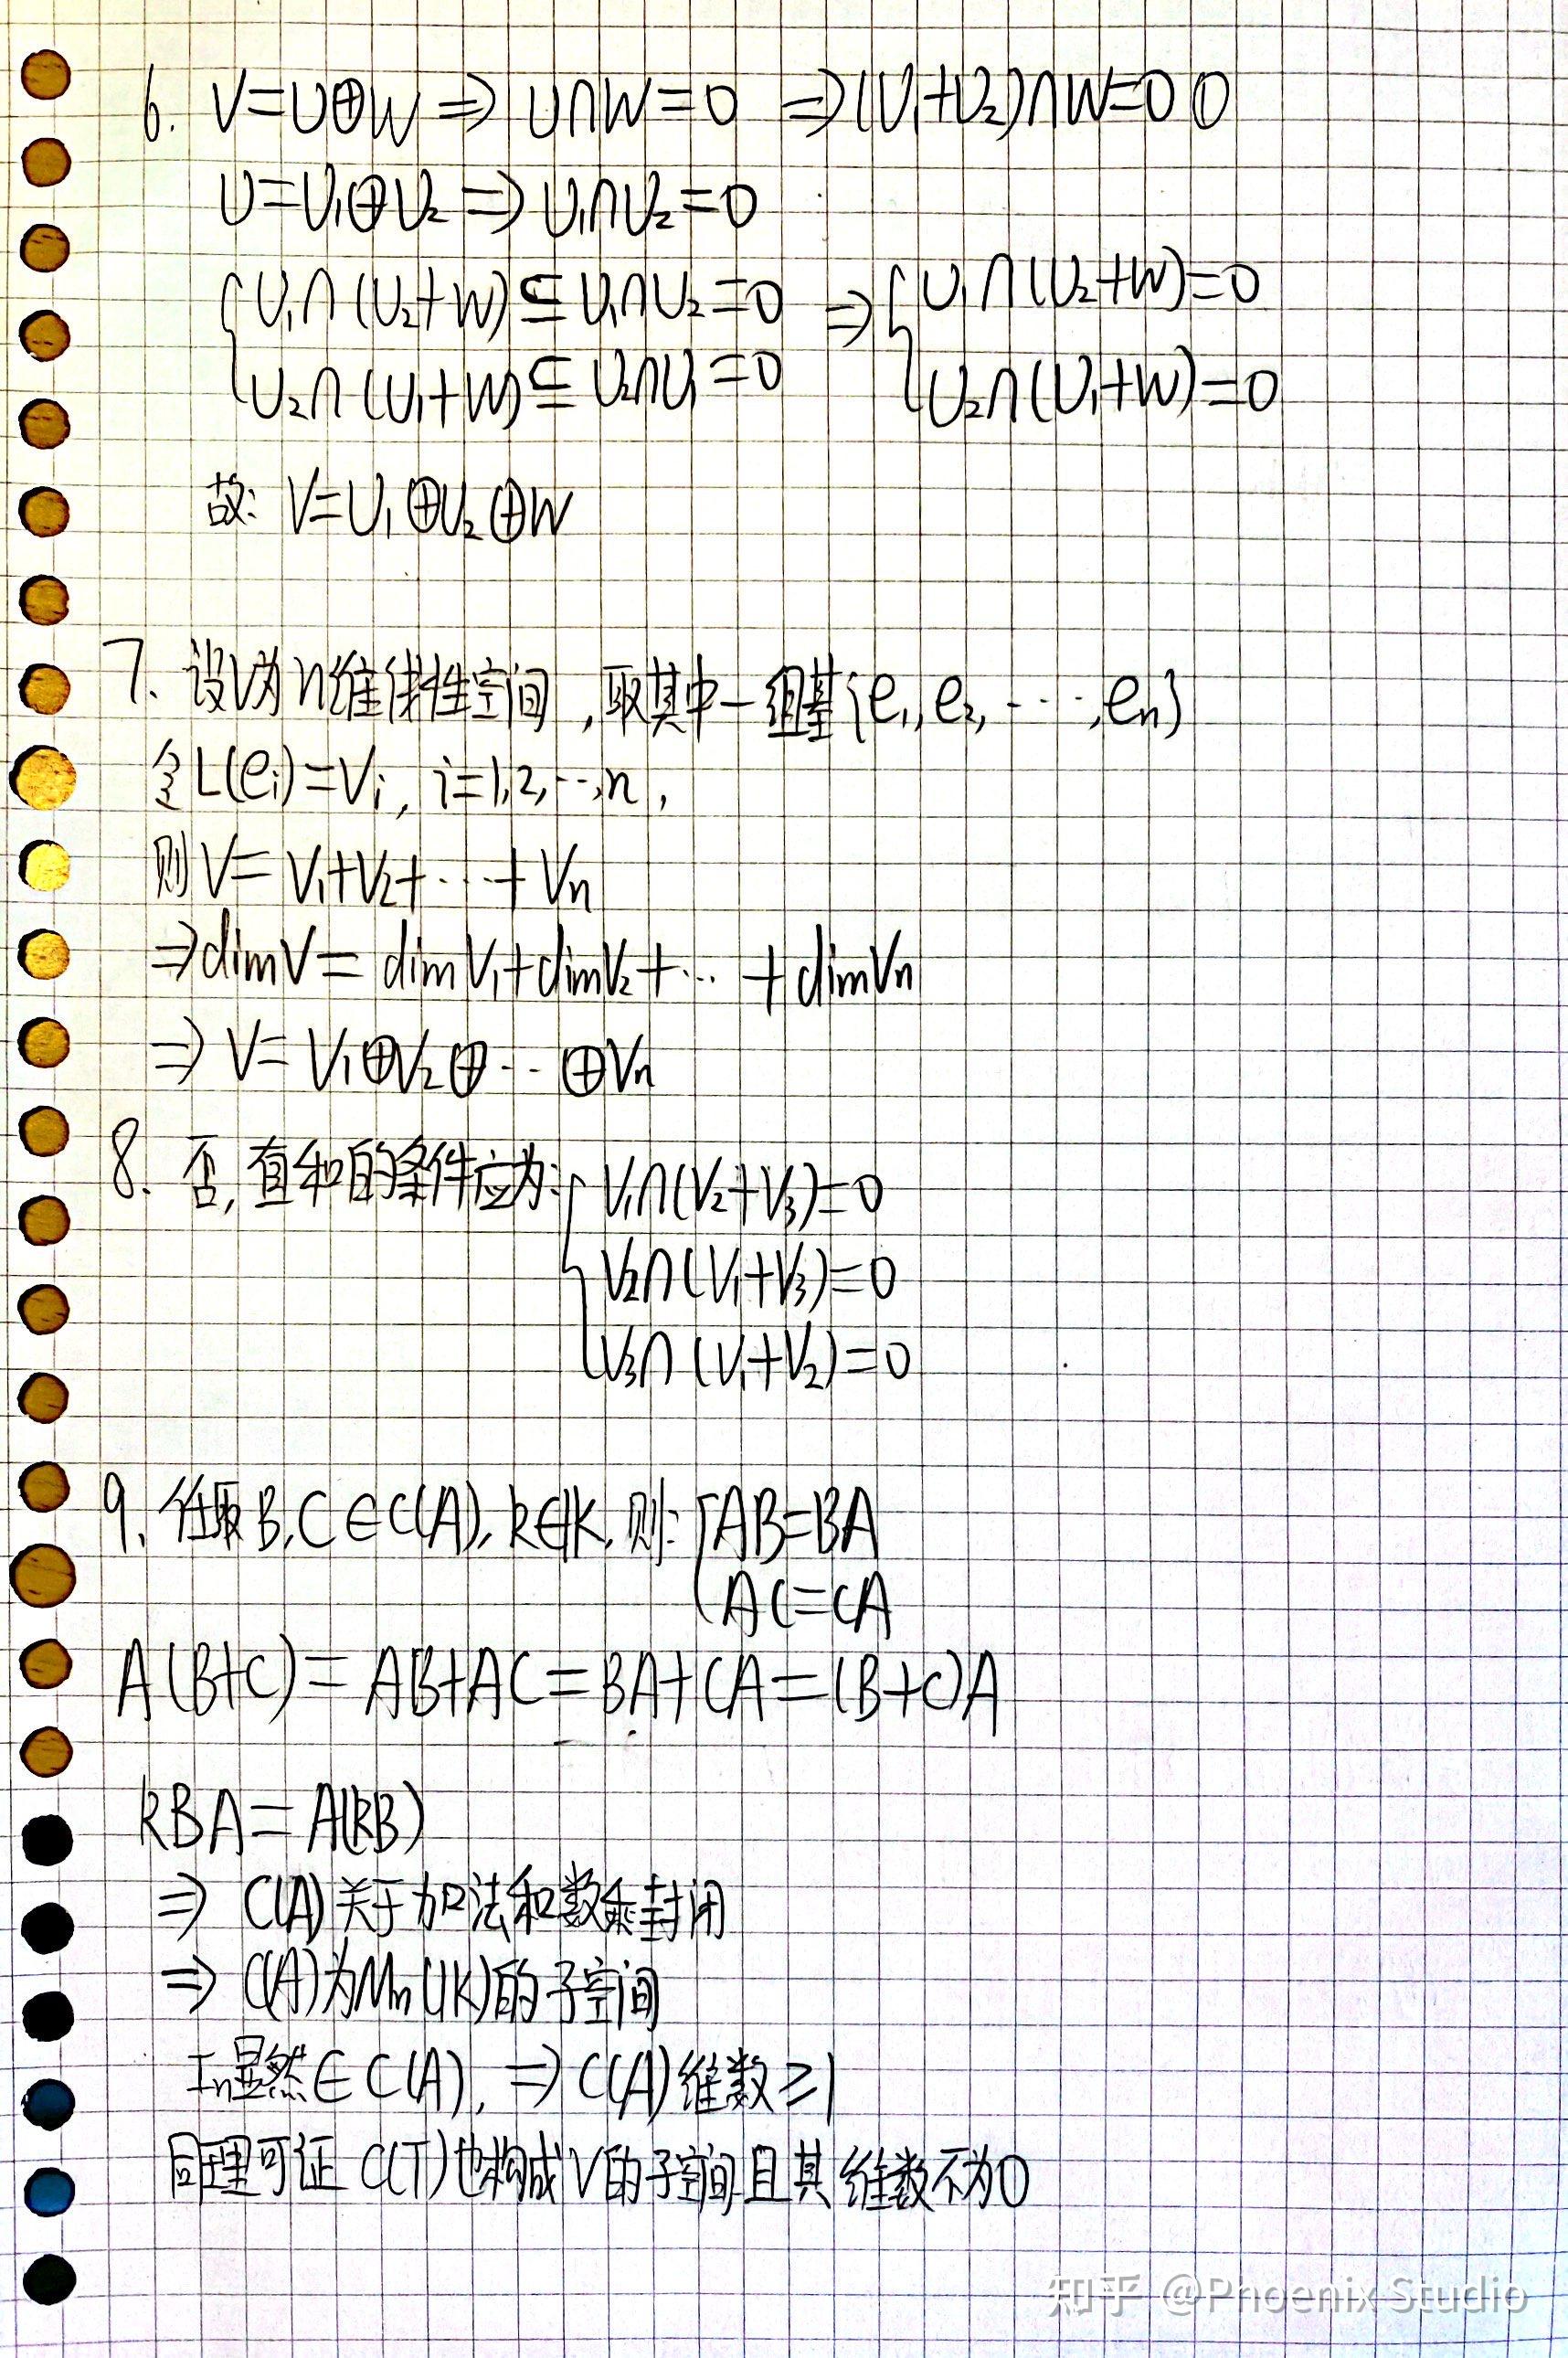 6. V=U⊕W ⇒ U∩W=0 ⇒(U₁+U₂)∩W=0 ①
U=U₁⊕U₂ ⇒ U₁∩U₂=0
{U₁∩(U₂+W)⊆U₁∩U₂=0 ⇒ {U₁∩(U₂+W)=0
U₂∩(U₁+W)⊆U₂∩U₁=0 U₂∩(U₁+W)=0
故: V=U₁⊕U₂⊕W
7. 设V为n维线性空间,取其中一组基{e₁,e₂,⋯,eₙ}
令L(eᵢ)=Vᵢ, i=1,2,⋯,n,
则V=V₁+V₂+⋯+Vₙ
⇒dimV=dimV₁+dimV₂+⋯+dimVₙ
⇒V=V₁⊕V₂⊕⋯⊕Vₙ
8. 否,直和的条件应为:{V₁∩(V₂+V₃)=0
V₂∩(V₁+V₃)=0
V₃∩(V₁+V₂)=0
9. 任取B,C∈C(A), k∈K, 则:{AB=BA
AC=CA
A(B+C)=AB+AC=BA+CA=(B+C)A
kBA=A(kB)
⇒ C(A)关于加法和数乘封闭
⇒ C(A)为Mₙ(K)的子空间
Iₙ显然∈C(A), ⇒C(A)维数≥1
同理可证 C(T)也构成V的子空间且其维数不为0
知乎 @Phoenix Studio